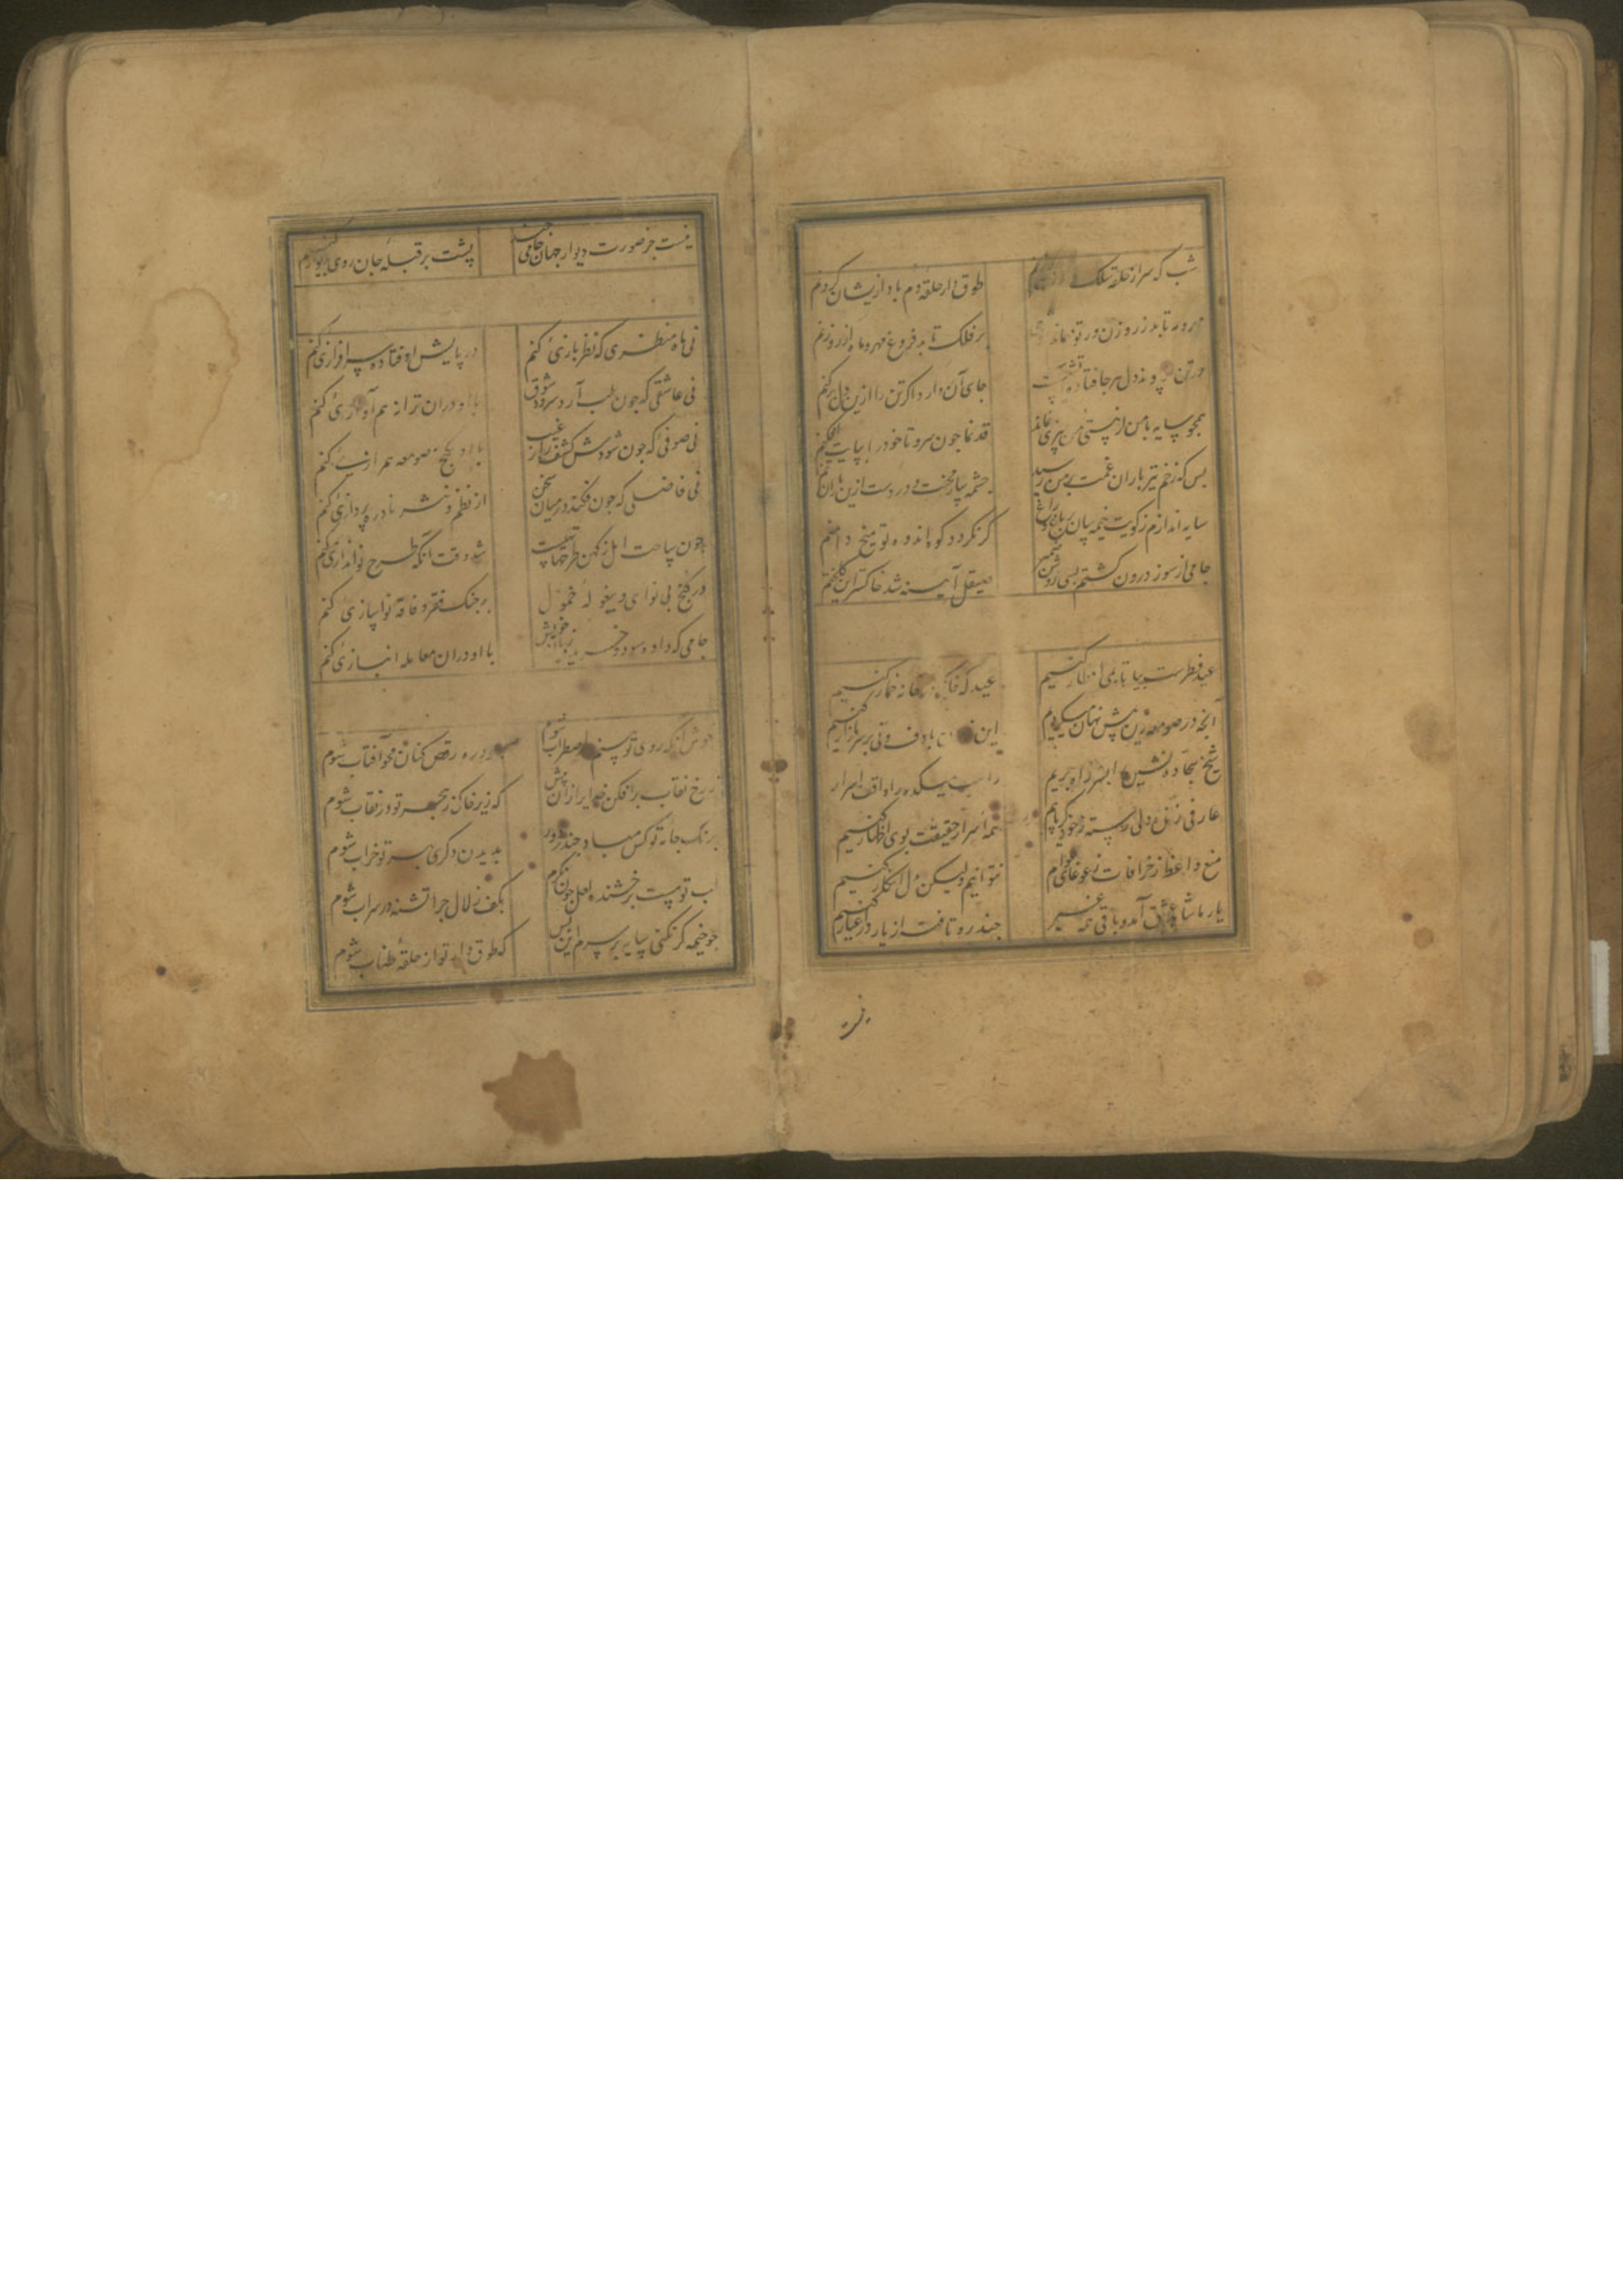 شب که سر از حلقه سلک طوق دار حلقه دم باد از ایشان کردنم
مهر و مه تابد ز روزن ور تو بر فلک تابد فروغ مهر و ماه از روزنم
در تن پیوند دل هر جا فتاده جای آن دارد اگر تن را ازین دل برکنم
همچو سایه با من از پستی من چیزی نماند قد نما چون سرو تا خود را بپایت افکنم
بس که زخم تیر باران غمت بر من رسید چشمه بسیار سخت و در دست ازین باران تنم
سایه اندازم ز کویت خیمه سان گر نگردد کوه اندوه تو میخ دامنم
جامی از سوز درون گشتم بسی روشن ضمیر صیقل آینه شد خاکستر این گلخنم
عید فطرست بیا تا می افطار کنیم عید که خانه خمار کنیم
آنچه در صومعه زین پیش نهان میکردیم این با دف و نی بر سر بازار کنیم
شیخ سجاده نشین را بسر راه بریم میکده را واقف اسرار
عارفی زنده دلی رسته ز خود گر یابیم همه اسرار حقیقت بوی اظهار کنیم
منع واعظ ز خرافات ز غوغای عوام نتوانیم ولیکن بدل انکار کنیم
یار ما شاهد عشق آمد و باقی همه غیر چند رو تافته از یار در اغیار کنیم
نیست
نیست جز صورت دیوار جهان جامی چند پشت بر قبله جان روی بدیوار کنیم
نی ماه منظری که نظر بازئ کنم در پایش اوفتاده سرافرازئ کنم
نی عاشقی که چون طلب آرد سرود شوق با او دران ترانه هم آوازئ کنم
نی صوفی که چون شودش کشف راز غیب با او بکنج صومعه همرازئ کنم
نی فاضلی که چون فکند در میان سخن از نظم و نثر نادره پردازئ کنم
چون ساحت امل ز کهن طرحها شد وقت آنکه طرح نو اندازئ کنم
در کنج بی نوای و بیغوله خمول بر چنگ فقر و فاقه نواسازئ کنم
جامی که داده سود و خریده زیان خویش با او دران معامله انبازئ کنم
خوش آنکه روی تو بینم در اضطراب شوم در ره رقص کنان محو آفتاب شوم
ز رخ نقاب برافکن خدایرا زان پیش که زیر خاک ز هجر تو در نقاب شوم
برنگ جامه تو کس مباد چند از دور بدیدن دگری بهر تو خراب شوم
لب تو هست درخشنده لعل چون نگرم بکف زلال چرا تشنه در سراب شوم
چو خیمه گر نکنی سایه بر سرم این بس که طوق دار تو از حلقه طناب شوم